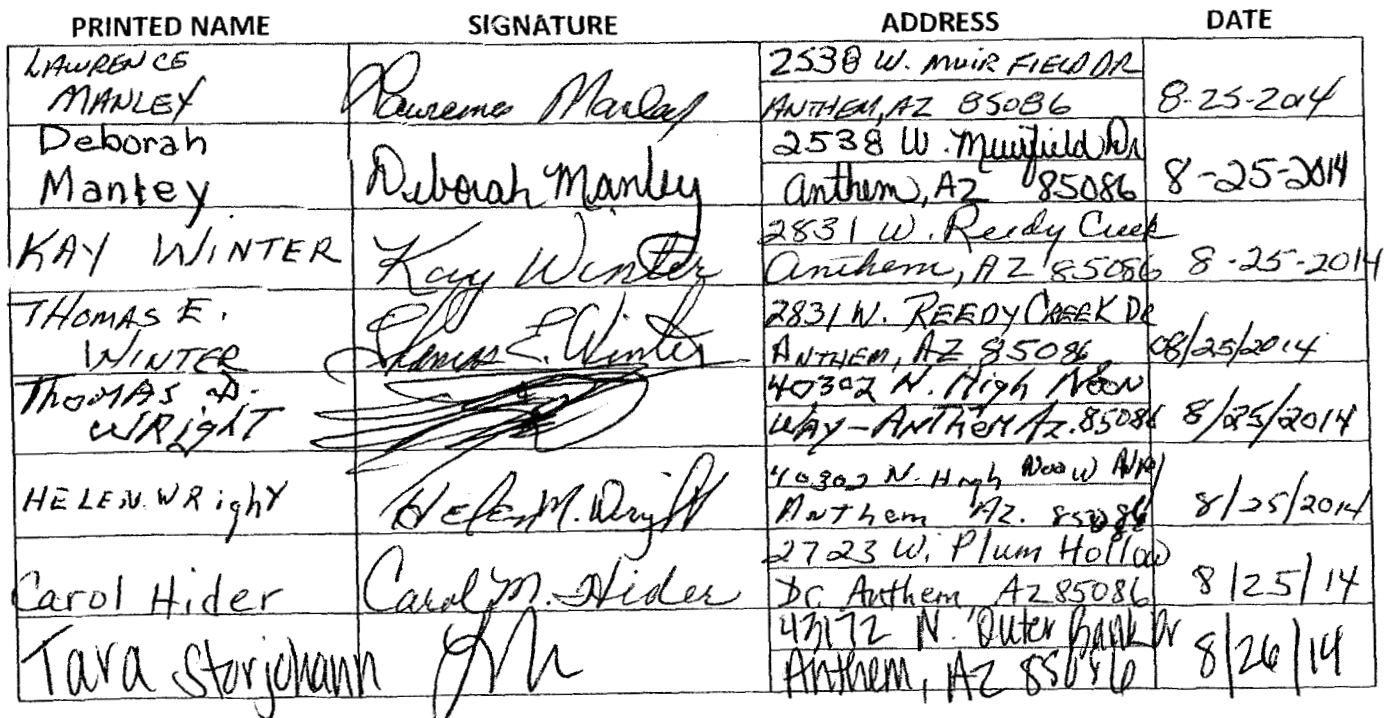 PRINTED NAME SIGNATURE ADDRESS DATE
LAWRENCE MANLEY Lawrence Manley 2538 W. MUIRFIELD DR ANTHEM, AZ 85086 8-25-2014
Deborah Manley Deborah Manley 2538 W. Muirfield Dr Anthem, AZ 85086 8-25-2014
KAY WINTER Kay Winter 2831 W. Reedy Creek Anthem, AZ 85086 8-25-2014
THOMAS E. WINTER Thomas E. Winter 2831 W. REEDY CREEK DR ANTHEM, AZ 85086 08/25/2014
THOMAS D. WRighT 40302 N. High Noon WAy - ANTHEM Az. 85086 8/25/2014
HELEN WRighT Helen M. Wright 40302 N. High Noon WAy Anthem Az. 85086 8/25/2014
Carol Hider Carol M. Hider 2723 W. Plum Hollow Dr Anthem AZ 85086 8/25/14
Tara Storjohann 43172 N. Outer Bank Dr Anthem, AZ 85086 8/26/14